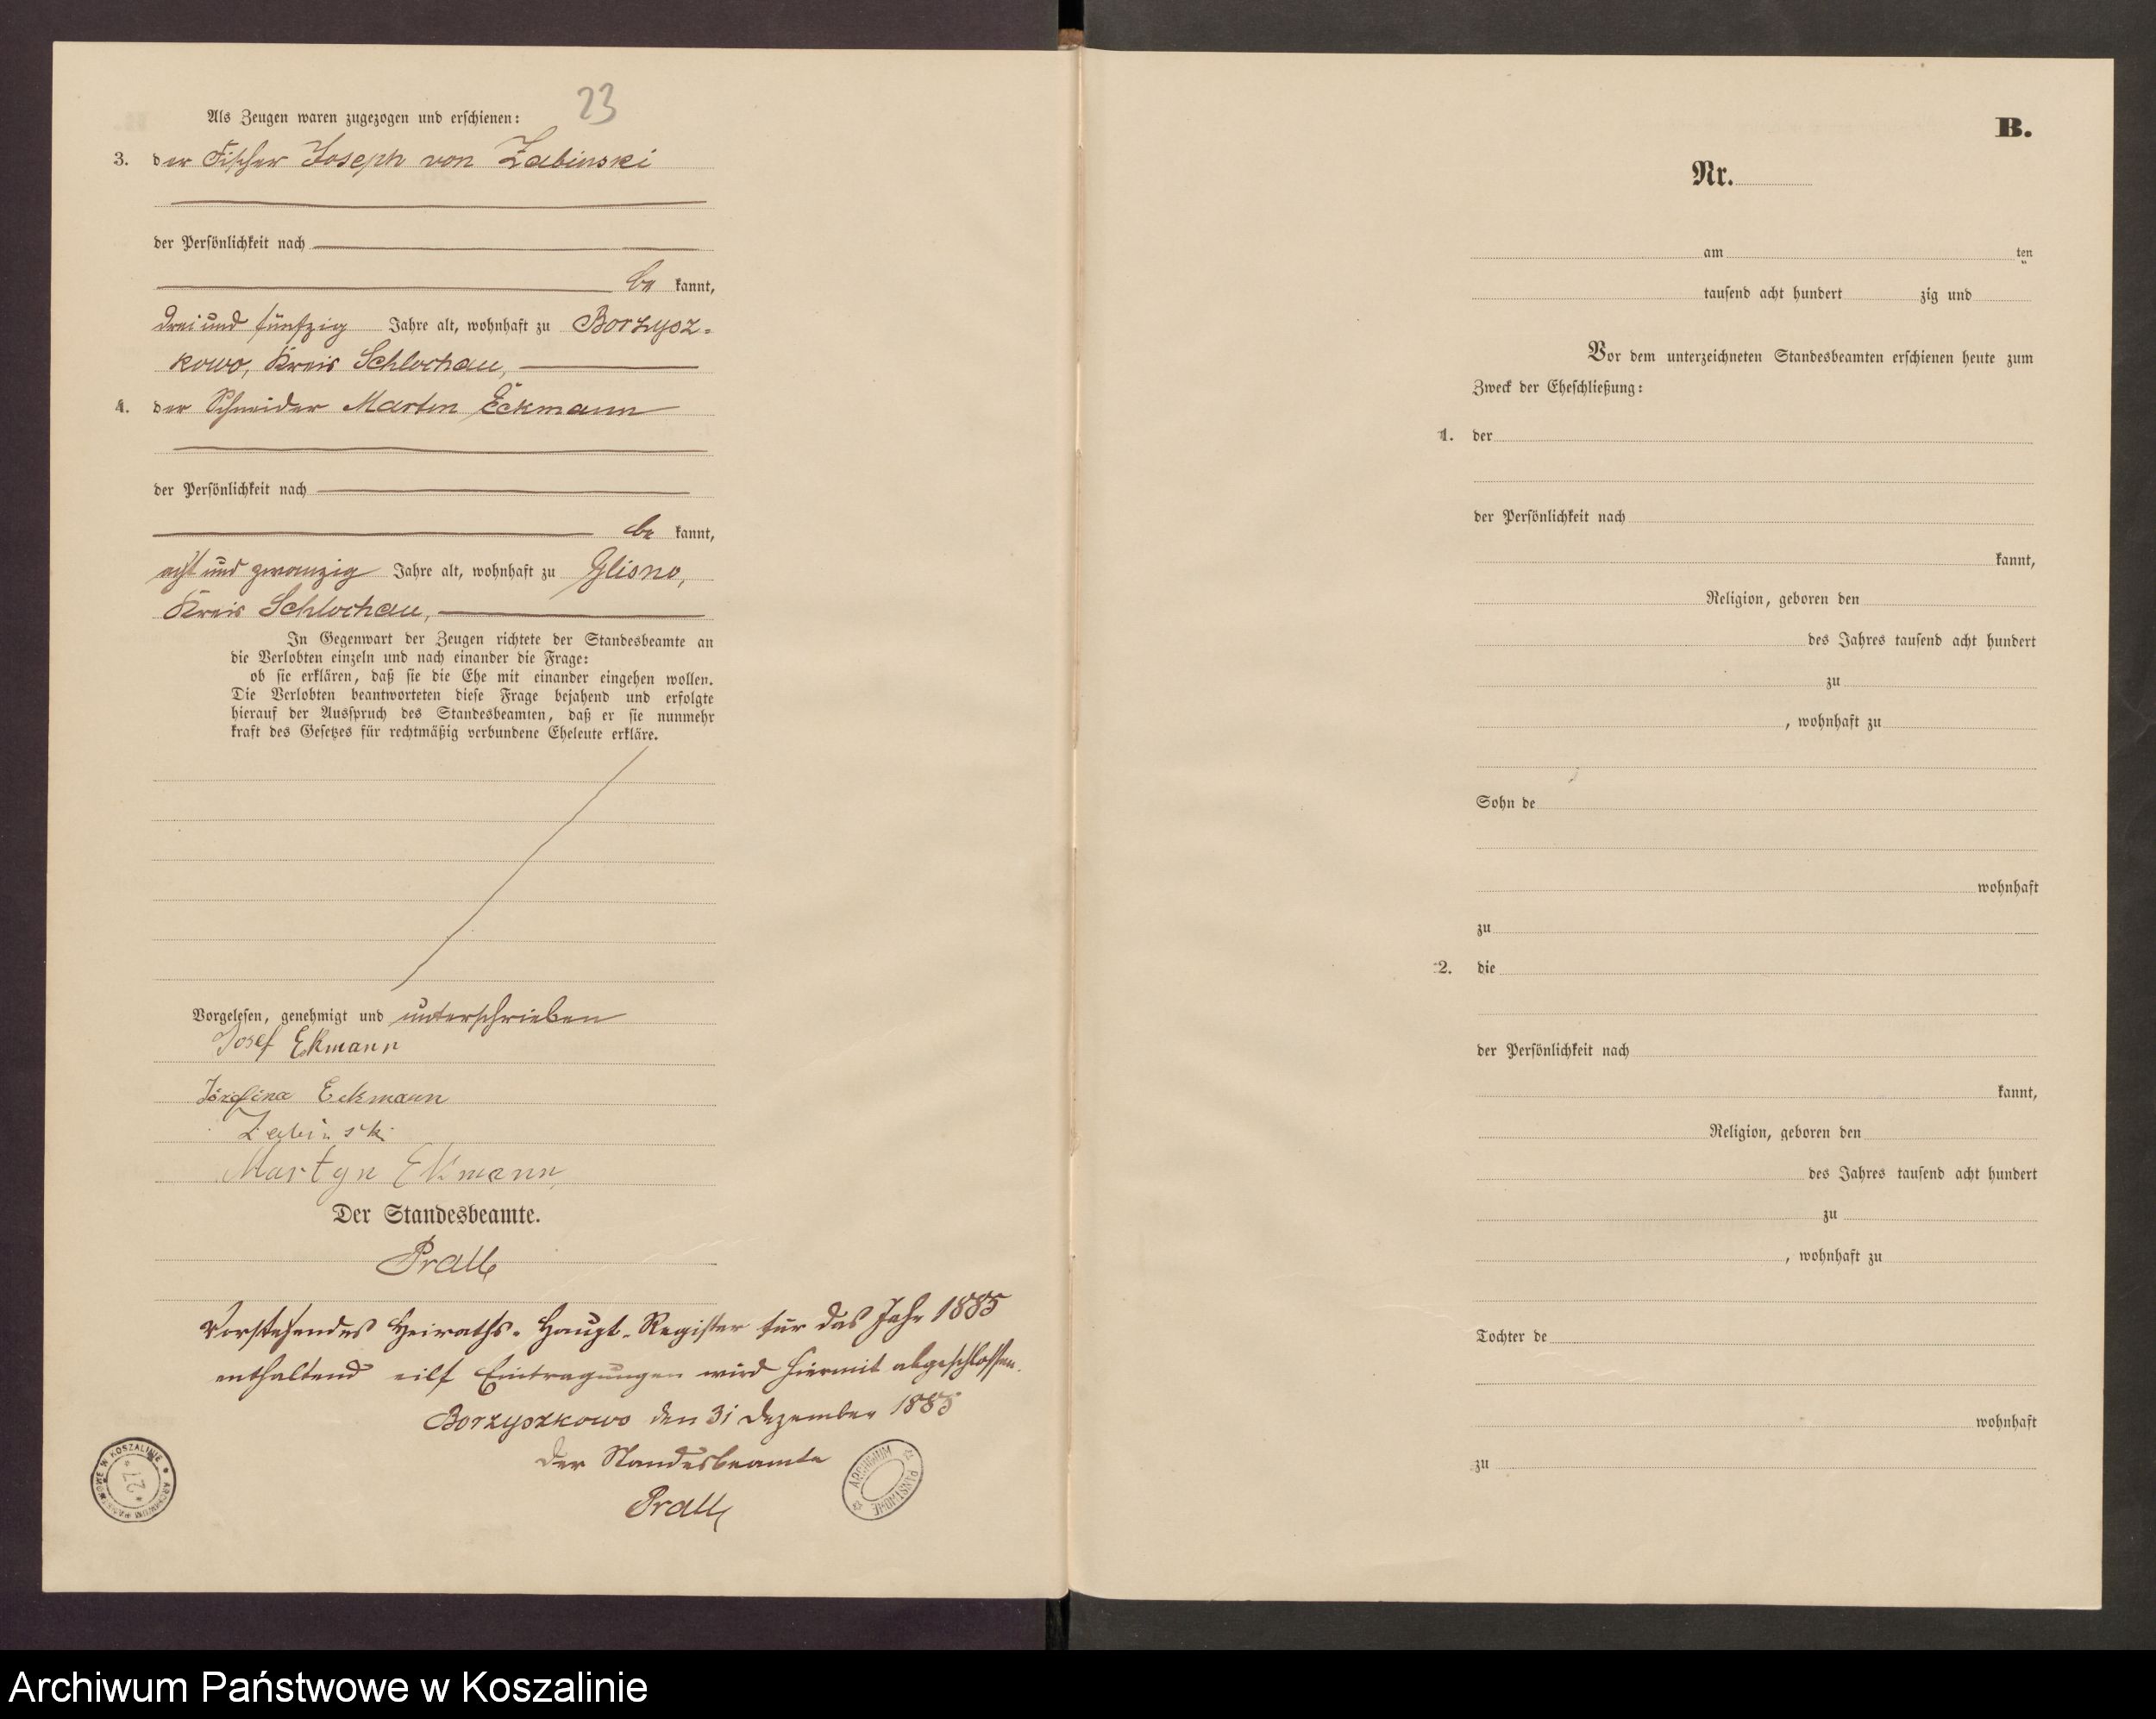 23
Als Zeugen waren zugezogen und erschienen:
3. der Fischer Joseph von Zabinski
der Persönlichkeit nach
be kannt,
drei und fünfzig Jahre alt, wohnhaft zu Borzysz-
kowo, Kreis Schlochau,
4. der Schneider Martin Eckmann
der Persönlichkeit nach
be kannt,
acht und zwanzig Jahre alt, wohnhaft zu Glisno,
Kreis Schlochau,
In Gegenwart der Zeugen richtete der Standesbeamte an
die Verlobten einzeln und nach einander die Frage:
ob sie erklären, daß sie die Ehe mit einander eingehen wollen.
Die Verlobten beantworteten diese Frage bejahend und erfolgte
hierauf der Ausspruch des Standesbeamten, daß er sie nunmehr
kraft des Gesetzes für rechtmäßig verbundene Eheleute erkläre.
Vorgelesen, genehmigt und unterschrieben
Josef Ekmann
Józefina Eckmann
Zabinski
Martyn Ekmann
Der Standesbeamte.
Prall
Vorstehendes Heiraths-Haupt-Register für das Jahr 1885
enthaltend eilf Eintragungen wird hiermit abgeschlossen.
Borzyszkowo den 31 Dezember 1885
Der Standesbeamte
Prall
ARCHIWUM PAŃSTWOWE W KOSZALINIE
27
ARCHIWUM PAŃSTWOWE
B.
Nr.
am ten
tausend acht hundert zig und
Vor dem unterzeichneten Standesbeamten erschienen heute zum
Zweck der Eheschließung:
1. der
der Persönlichkeit nach
kannt,
Religion, geboren den
des Jahres tausend acht hundert
zu
, wohnhaft zu
Sohn de
wohnhaft
zu
2. die
der Persönlichkeit nach
kannt,
Religion, geboren den
des Jahres tausend acht hundert
zu
, wohnhaft zu
Tochter de
wohnhaft
zu
Archiwum Państwowe w Koszalinie